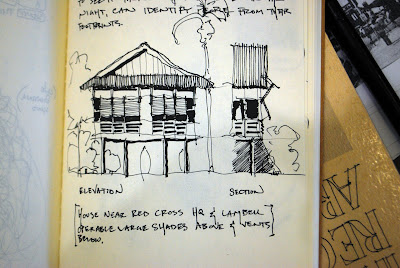 NIGHT, CAN IDENTIFY FROM THEIR
FOOTPRINTS.
ELEVATION
SECTION
[HOUSE NEAR RED CROSS HQ & LAMBELL
OPERABLE LARGE SHADES ABOVE & VENTS]
BELOW.
REC
AR